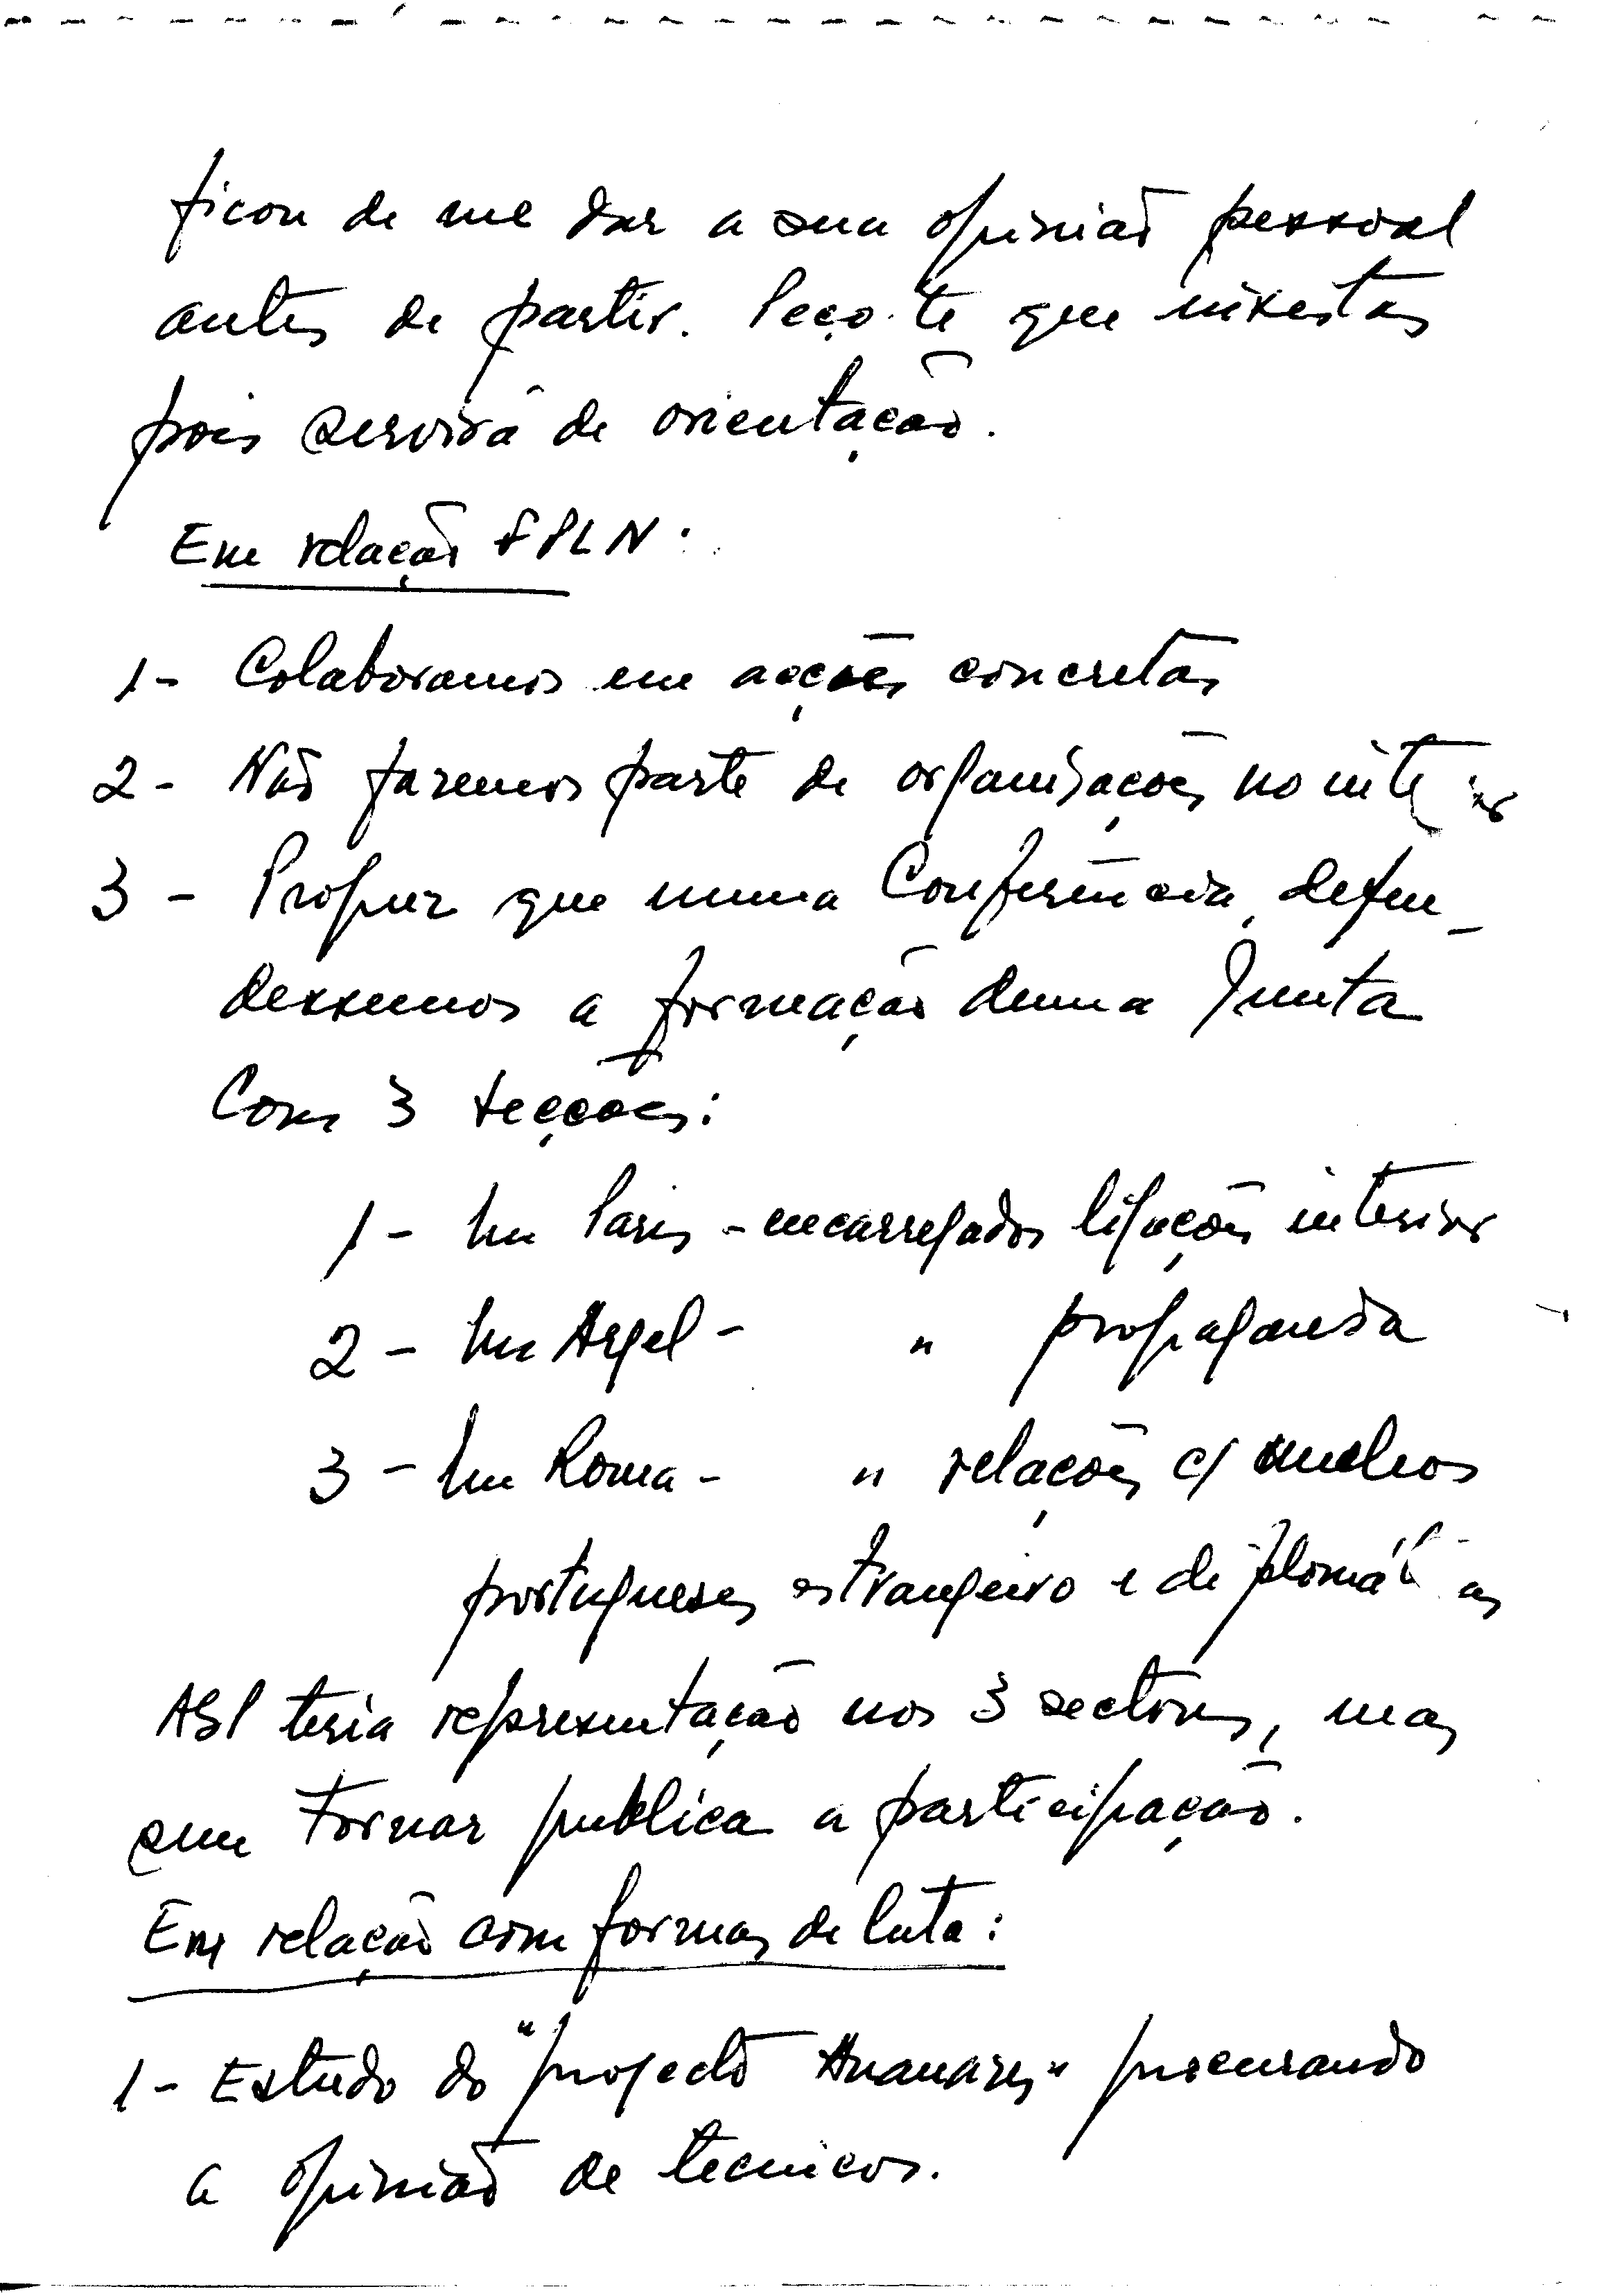 ficou de me dar a sua opinião pessoal
antes de partir. Peço-te que insistas
pois servirá de orientação.
Em relação FPLN:
1- Colaboramos em acções concretas
2- Não faremos parte de organizações no interior
3- Propuz que numa Conferência, defen-
dessemos a formação duma Junta
Com 3 secções:
1- Em Paris - encarregados ligações interior
2- Em Argel - " propaganda
3- Em Roma - " relações c/ nucleos
portugueses estrangeiro e diplomáticas
ASP teria representação nos 3 sectores, mas
sem tornar publica a participação.
Em relação com formas de luta:
1- Estudo do "projecto" procurando
a opinião de tecnicos.